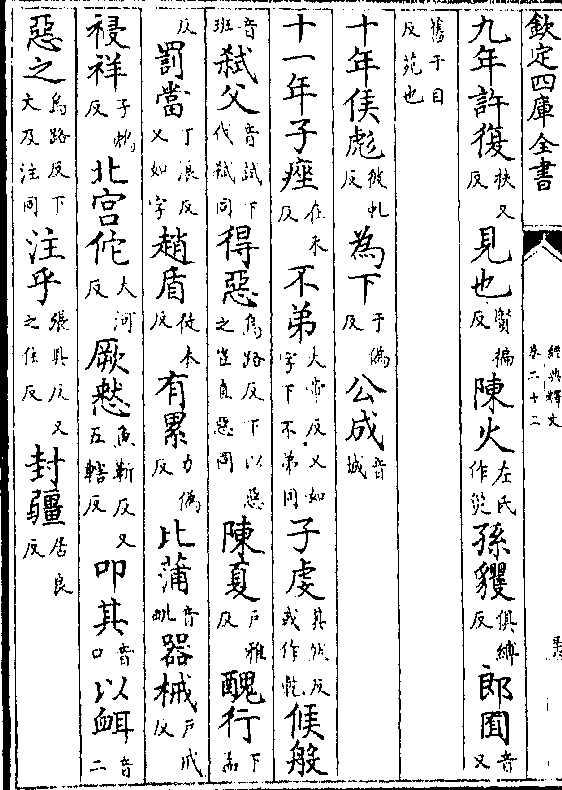 欽定四庫全書
經典釋文
卷二十二
九年許復扶又反見也賢徧反陳火左氏作災孫貜俱縛反郎囿音又
舊于目反苑也
十年侯彪彼虬反為下于偽反公成音城
十一年子痤在禾反不弟大帝反又如字下不弟同子虔其然反或作乾候般
音班弑父音試下代弑同得惡烏路反下以惡之豈直惡同陳夏戶雅反醜行下孟
反罰當丁浪反又如字趙盾徒本反有累力偽反比蒲音毗器械戶戒反
祲祥子鴆反北宮佗大河反厥憖魚靳反又五轄反叩其音口以衈音二
惡之烏路反下文及注同注乎張具反又之住反封疆居良反